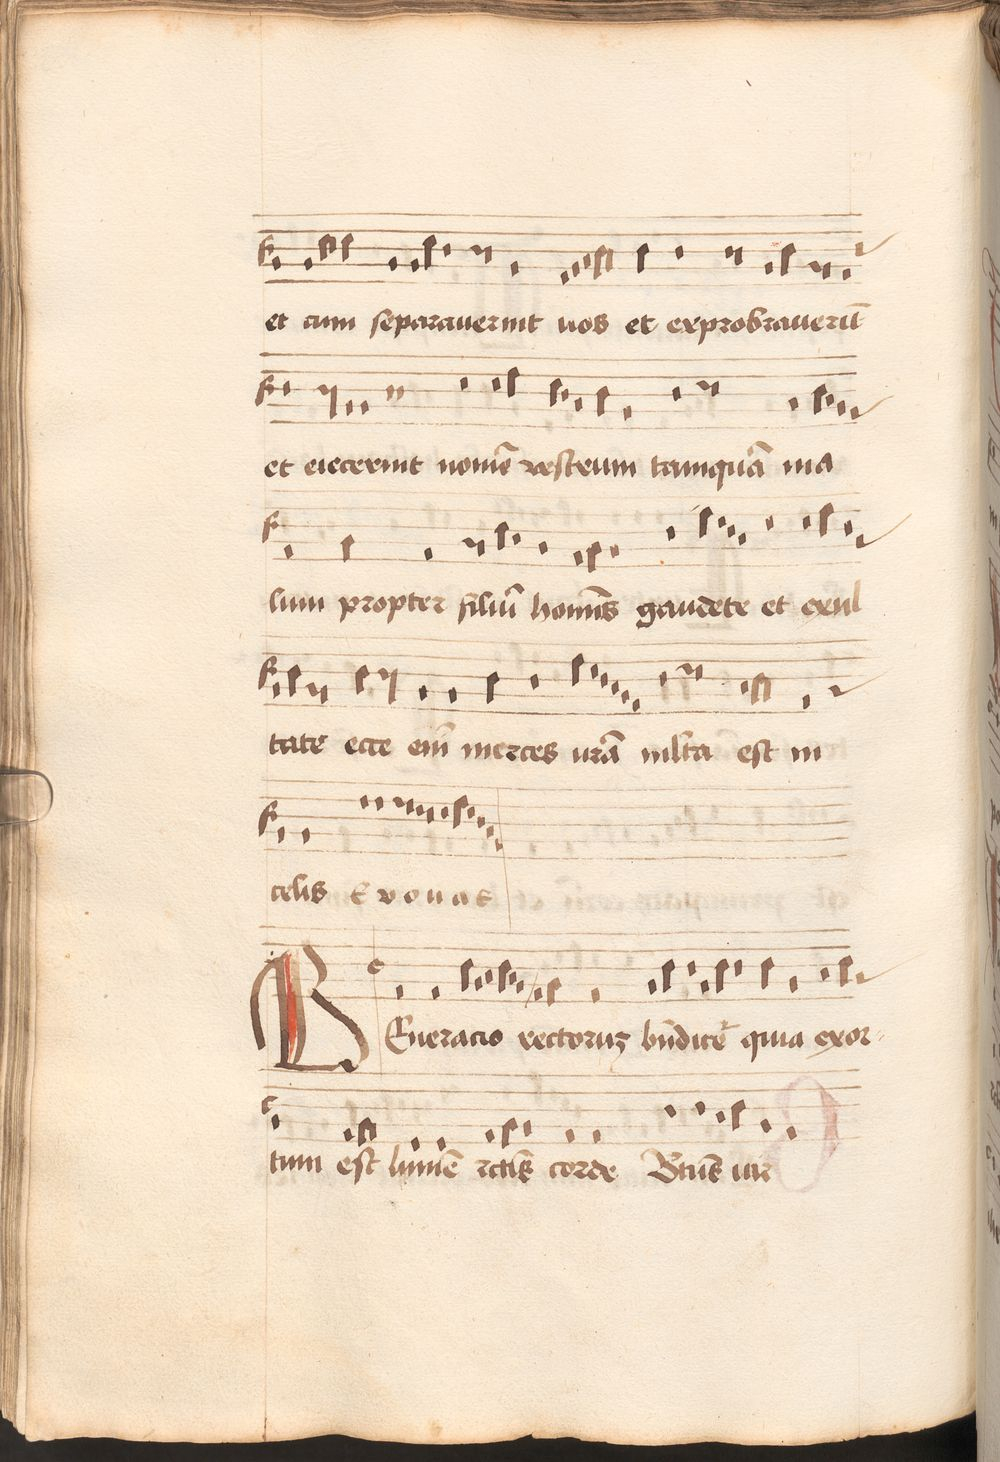 et cum separauerint uos et exprobrauerūt
et eiecerint nomē vestrum tamquā ma
lum propter filiū homīs gaudete et exul
tate ecce em̄ merces vr̄a ml̄ta est in
celis E v o u a e
GEneracio rectorum bn̄dicet̄ quia exor
tum est lumē rectis corde Btūs vir